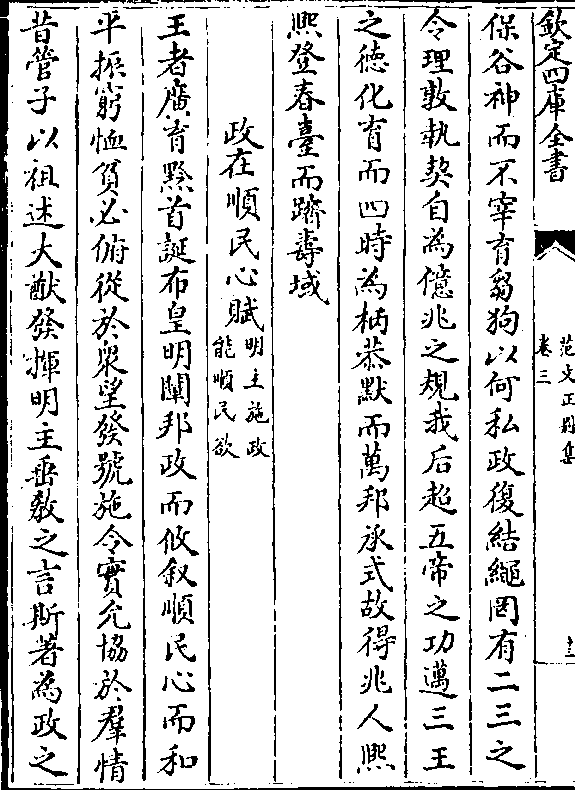 欽定四庫全書
范文正別集
卷三
十三
保谷神而不宰育芻狗以何私政復結繩罔有二三之
令理敦執契自為億兆之規我后超五帝之功邁三王
之徳化育而四時為柄恭默而萬邦承式故得兆人熙
熙登春臺而躋壽域
政在順民心賦明主施政
能順民欲
王者廣育黔首誕布皇明闡邦政而攸敘順民心而和
平振窮恤貧必俯從於衆望發號施令實允協於羣情
昔管子以祖述大猷發揮明主垂教之言斯著為政之